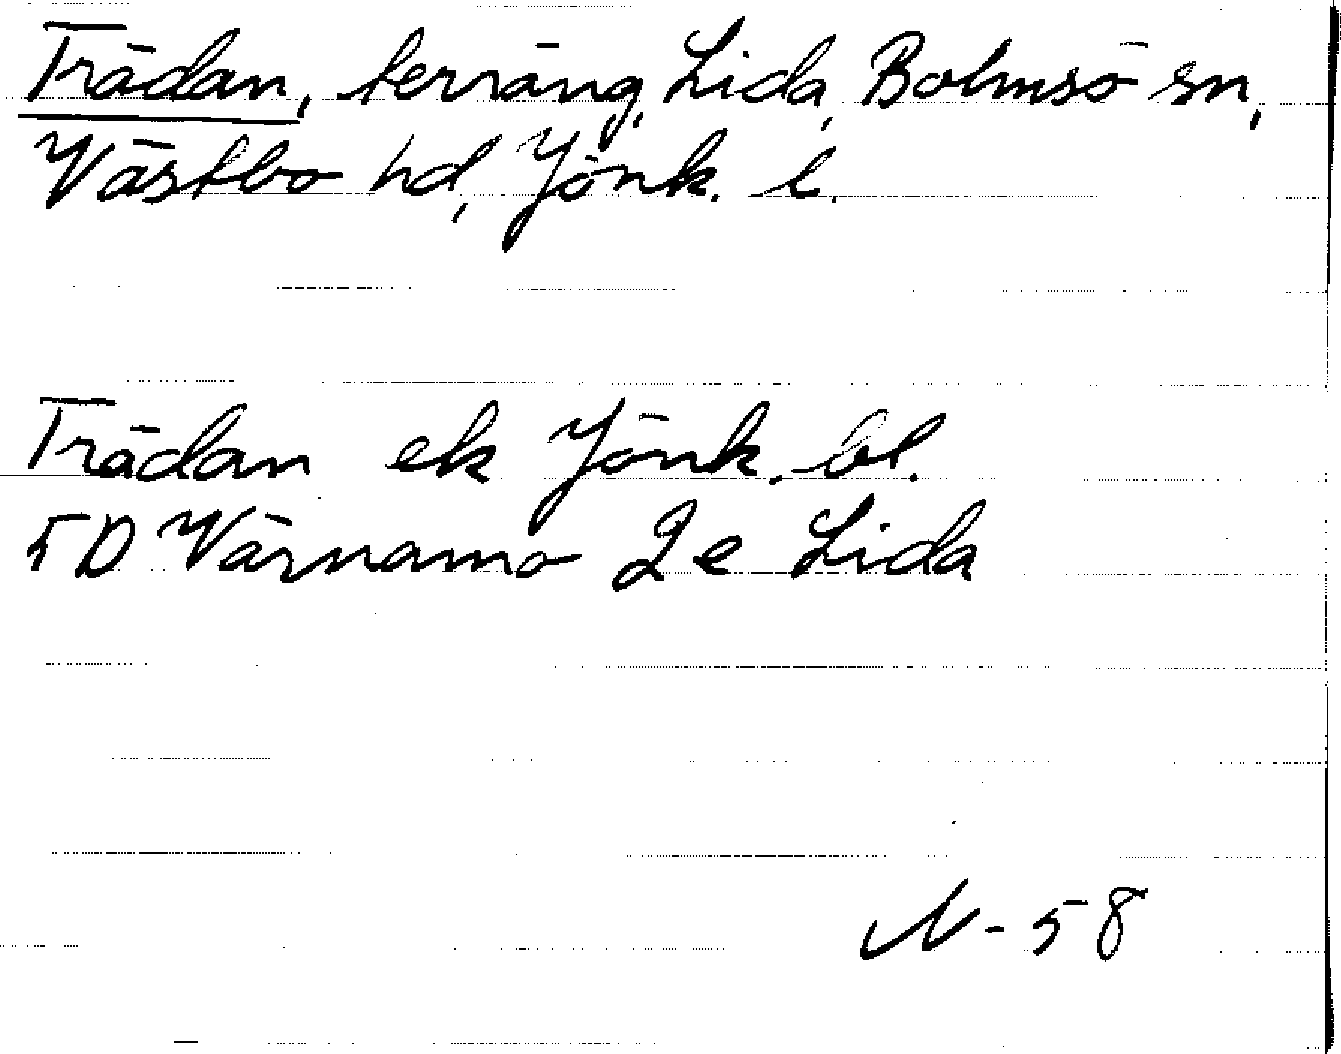 Trädan, terräng, Lida, Bolmsö sn,
Västbo hd, Jönk. l.
Trädan ek Jönk. bl.
5D Värnamo 2e Lida
N-58